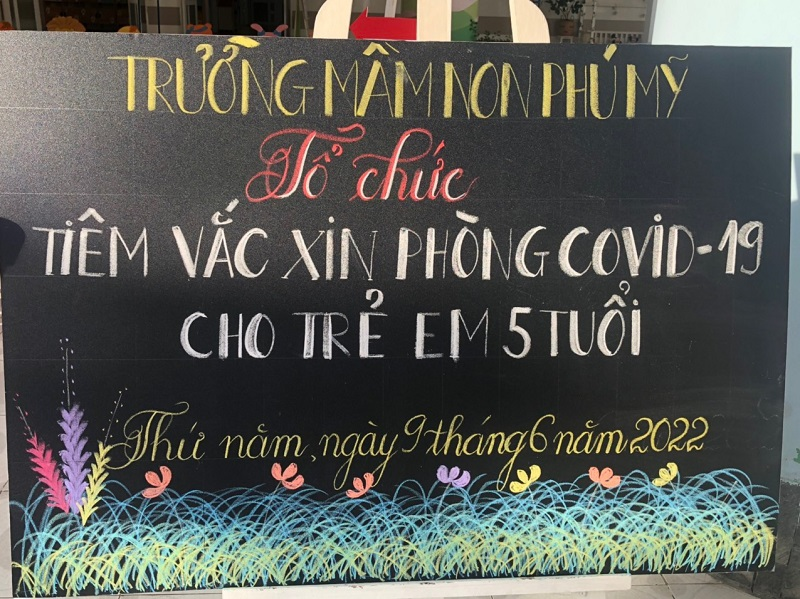 TRƯỜNG MẦM NON PHÚ MỸ
Tổ chức
TIÊM VẮC XIN PHÒNG COVID-19
CHO TRẺ EM 5 TUỔI
Thứ năm, ngày 9 tháng 6 năm 2022